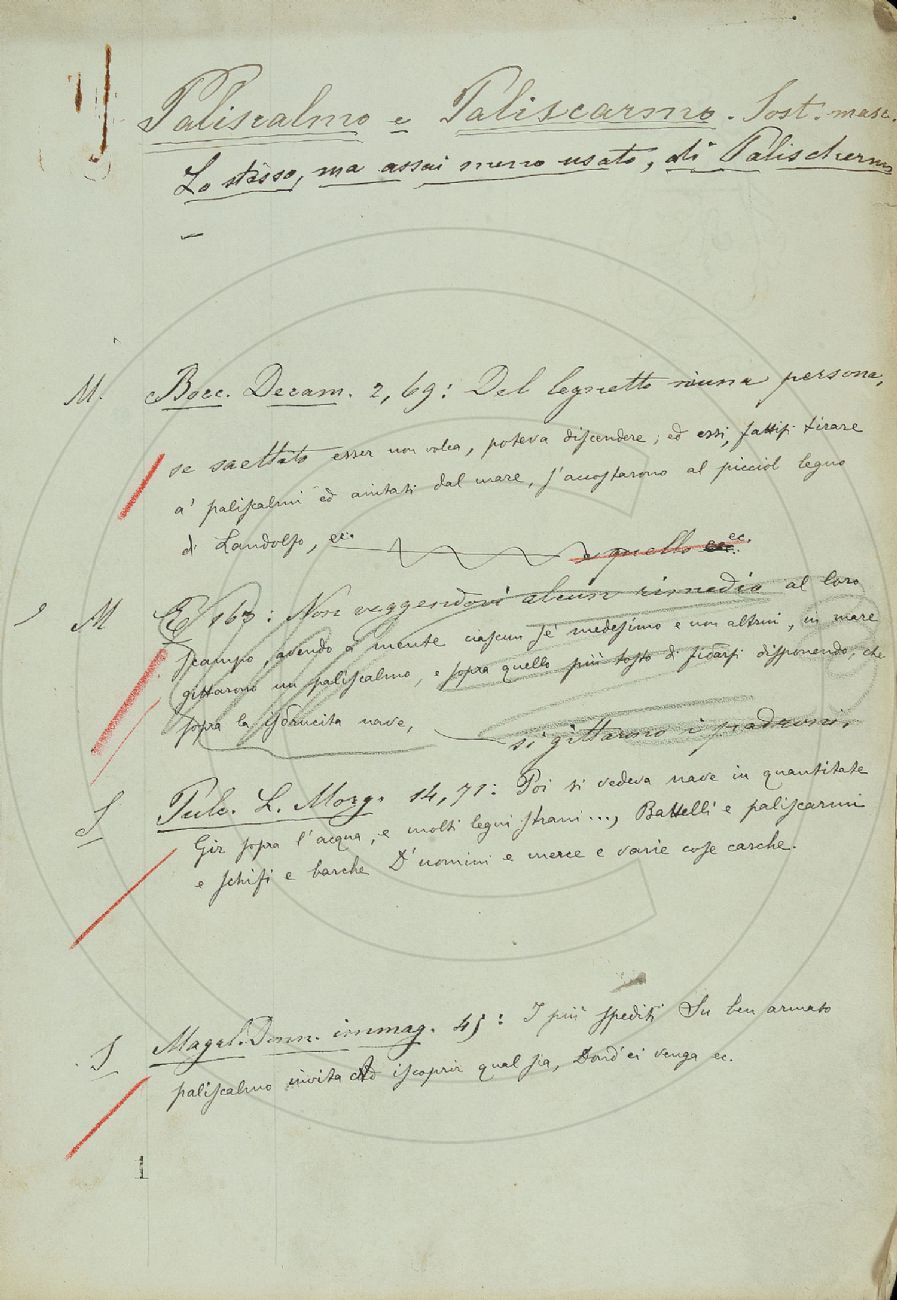 Paliscalmo e Paliscarmo. Sost. masc.
Lo stesso, ma assai meno usato, di Palischermo
–
M. Bocc. Decam. 2, 69: Del legnetto niuna persona,
se saettato esser non volea, poteva discendere; ed essi, fattisi tirare
a' paliscalmi ed aiutati dal mare, s'accostarono al picciol legno
di Landolfo, ec. e quello ec. ec.
M E 163: Non veggendovi alcun rimedio al loro
scampo, avendo a mente ciascun sé medesimo e non altrui, in mare
gittarono un paliscalmo, e sopra quello più tosto di fidarsi disponendo, che
sopra la sdrucita nave, si gittarono i padroni.
S Pulc. L. Morg. 14, 71: Poi si vedeva nave in quantitate
Gir sopra l'acqua, e molti legni strani..., Battelli e paliscarmi
e schifi e barche D'uomini e merce e varie cose carche.
S Magal. Donn. immag. 45: I più spediti Su ben armato
paliscalmo invita Ad iscoprir qual sia, Dond'ei venga ec.
1